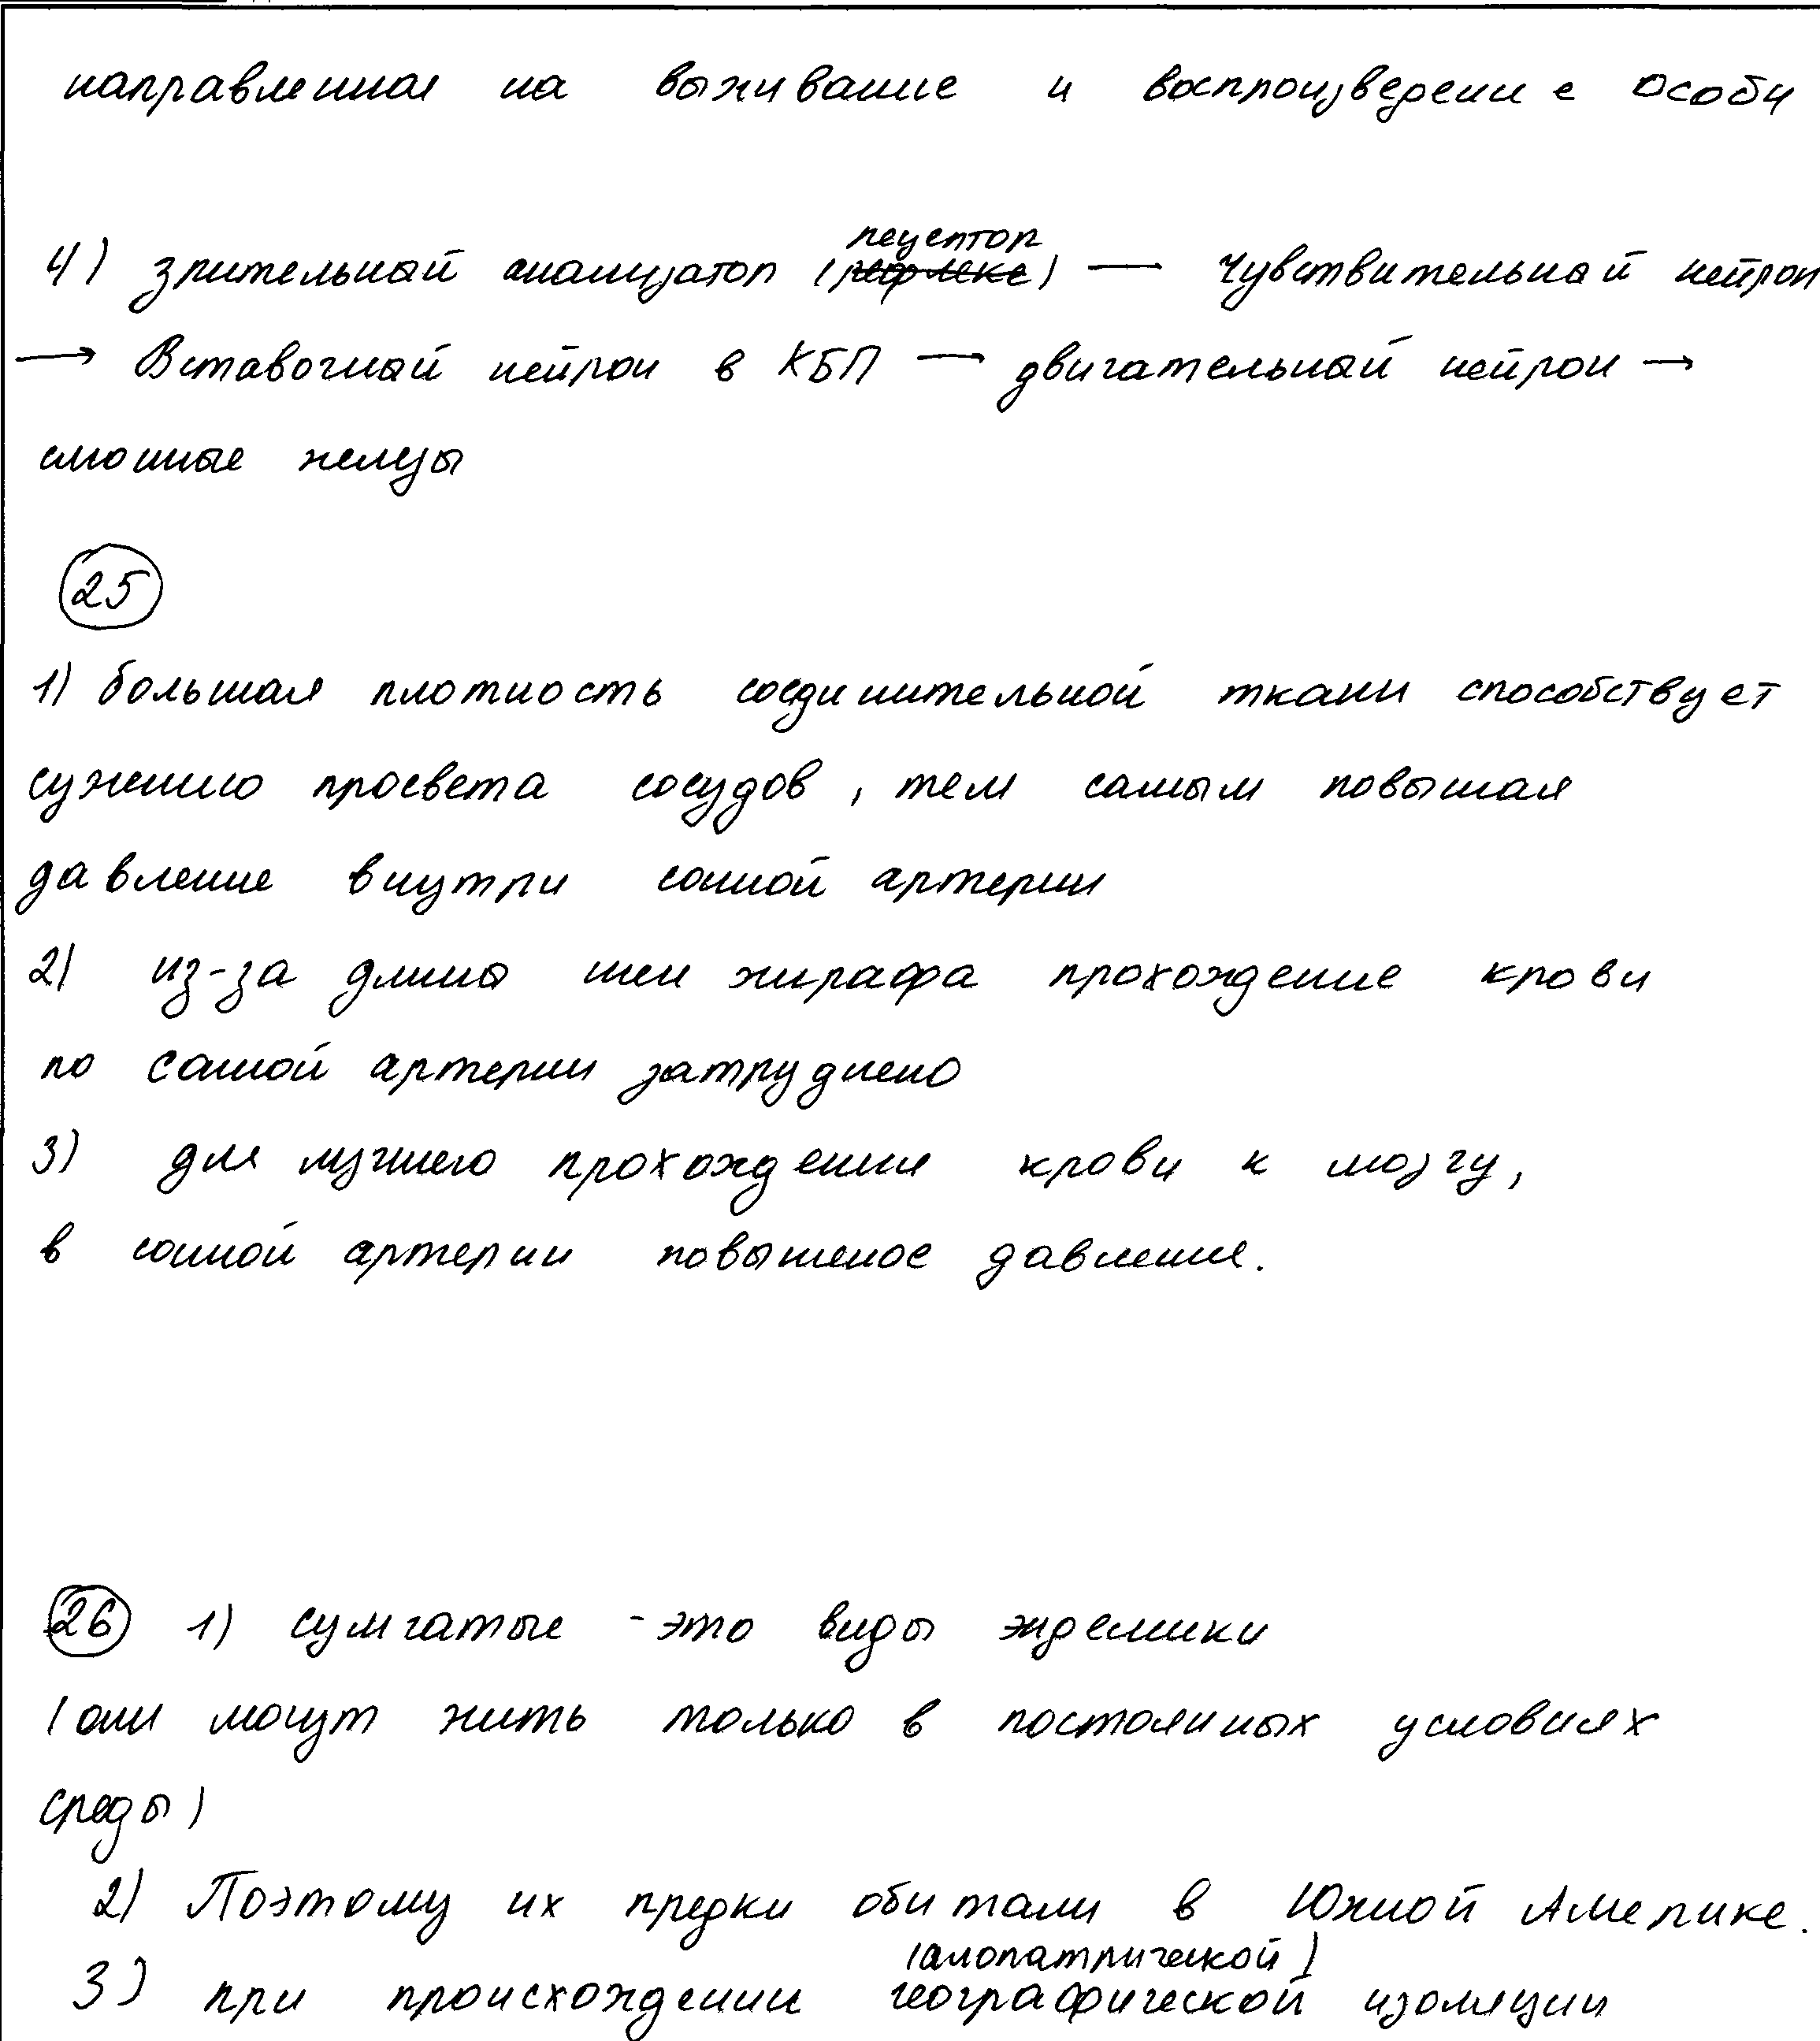 направленная на выживание и воспроизведение особи
4) зрительный анализатор (рецептор) — чувствительный нейрон
→ Вставочный нейрон в КБП → двигательный нейрон →
слюнные железы
25
1) большая плотность соединительной ткани способствует
сужению просвета сосудов, тем самым повышая
давление внутри сонной артерии
2) из-за длины шеи жирафа прохождение крови
по сонной артерии затруднено
3) для лучшего прохождения крови к мозгу,
в сонной артерии повышеное давление.
26 1) сумчатые - это виды эндемики
(они могут жить только в постоянных условиях
среды)
2) Поэтому их предки обитали в Южной Америке.
(алопатрической)
3) при происхождении географической изоляции